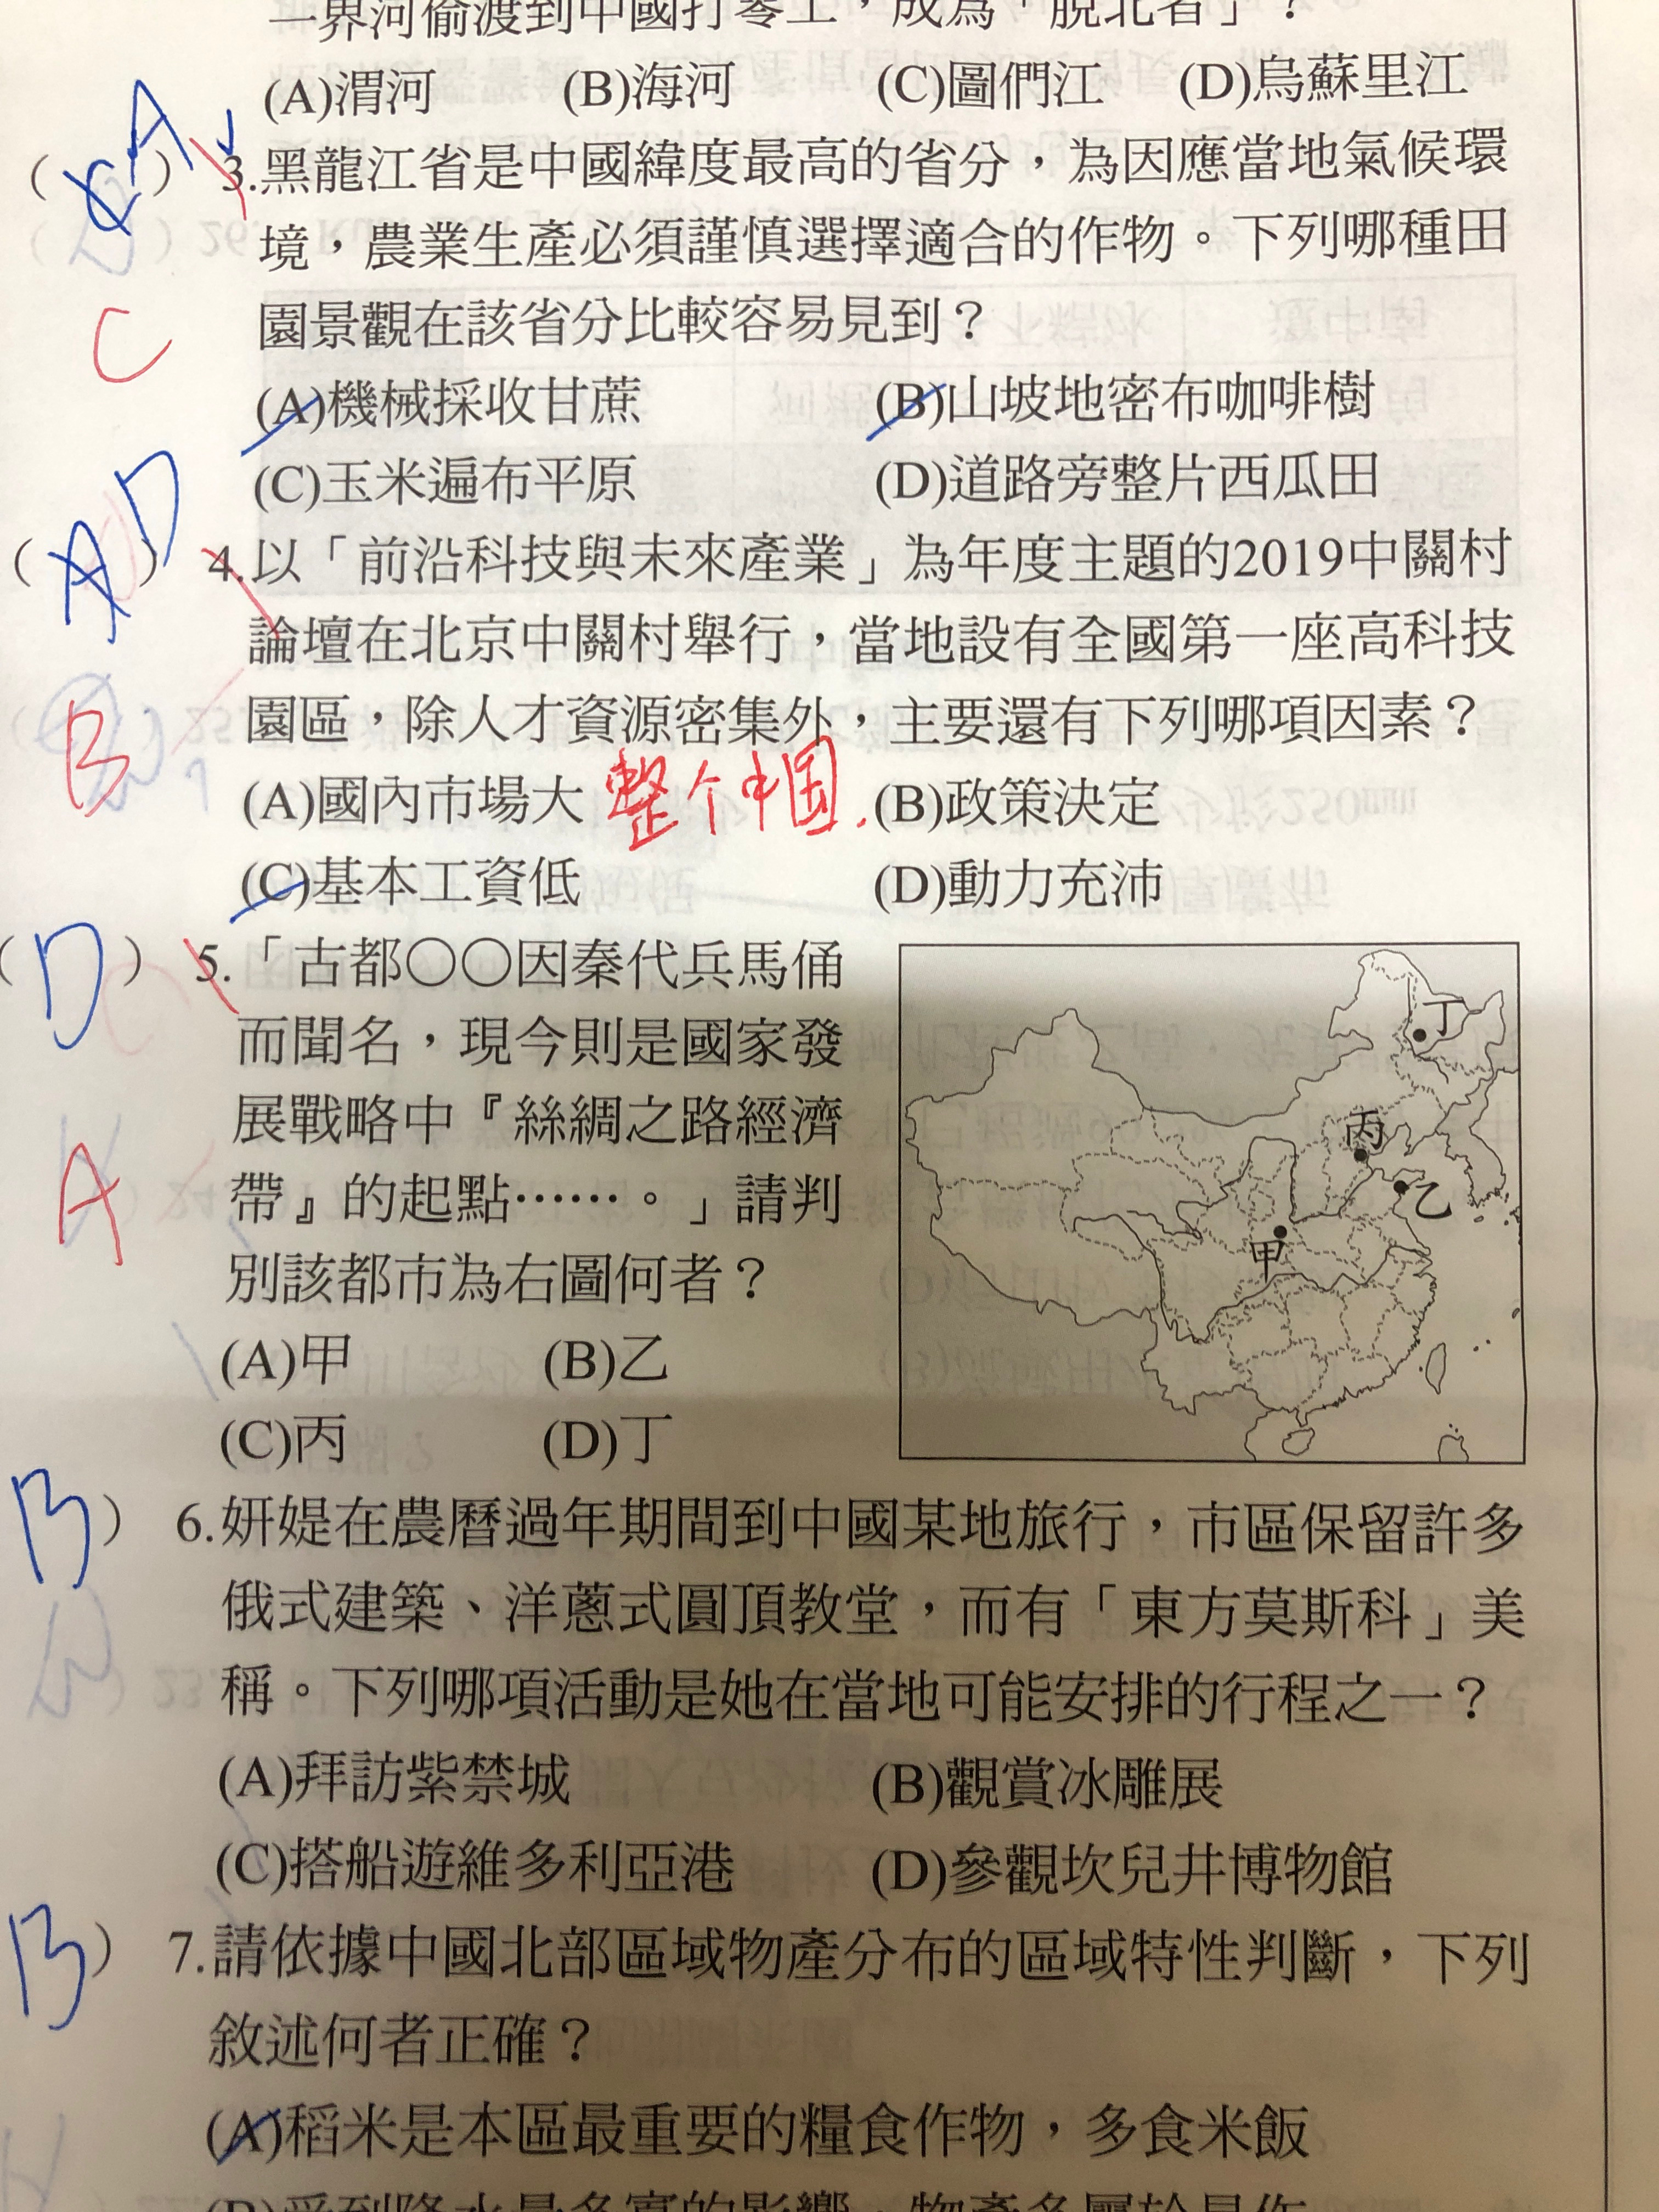 一界河偷渡到中國打零工，成為「脫北者」？
(A)渭河 (B)海河 (C)圖們江 (D)烏蘇里江
A
( C ) 3.黑龍江省是中國緯度最高的省分，為因應當地氣候環
境，農業生產必須謹慎選擇適合的作物。下列哪種田
園景觀在該省分比較容易見到？
C
(A)機械採收甘蔗 (B)山坡地密布咖啡樹
(C)玉米遍布平原 (D)道路旁整片西瓜田
D
( A ) 4.以「前沿科技與未來產業」為年度主題的2019中關村
論壇在北京中關村舉行，當地設有全國第一座高科技
園區，除人才資源密集外，主要還有下列哪項因素？
B
(A)國內市場大 整个中国. (B)政策決定
(C)基本工資低 (D)動力充沛
( D ) 5.「古都○○因秦代兵馬俑
而聞名，現今則是國家發
展戰略中『絲綢之路經濟
帶』的起點……。」請判
別該都市為右圖何者？
A
(A)甲 (B)乙
(C)丙 (D)丁
丁
丙
乙
甲
B ) 6.妍媞在農曆過年期間到中國某地旅行，市區保留許多
俄式建築、洋蔥式圓頂教堂，而有「東方莫斯科」美
稱。下列哪項活動是她在當地可能安排的行程之一？
(A)拜訪紫禁城 (B)觀賞冰雕展
(C)搭船遊維多利亞港 (D)參觀坎兒井博物館
B ) 7.請依據中國北部區域物產分布的區域特性判斷，下列
敘述何者正確？
(A)稻米是本區最重要的糧食作物，多食米飯